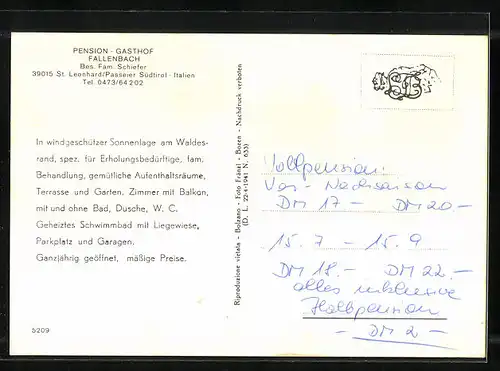 PENSION - GASTHOF
FALLENBACH
Bes. Fam. Schiefer
39015 St. Leonhard/Passeier Südtirol - Italien
Tel. 0473/64202
In windgeschützer Sonnenlage am Waldes-
rand, spez. für Erholungsbedürftige, fam.
Behandlung, gemütliche Aufenthaltsräume,
Terrasse und Garten, Zimmer mit Balkon,
mit und ohne Bad, Dusche, W. C.
Geheiztes Schwimmbad mit Liegewiese,
Parkplatz und Garagen.
Ganzjährig geöffnet, mäßige Preise.
5/209
Riproduzione vietata - Bolzano - Foto Fränzl - Bozen - Nachdruck verboten
(D. L. 22-4-1941 N. 633)
Vollpension:
Vor- Nachsaison
DM 17 - DM 20 -
15.7 - 15.9
DM 18.- DM 22.-
alles inklusive
Halbpension
- DM 2 -